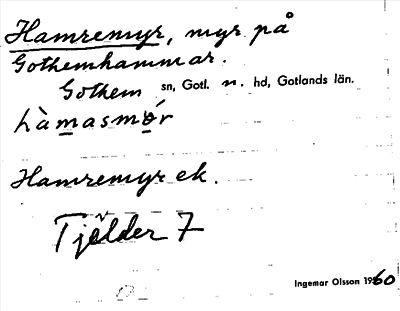 Hamremyr, myr på
Gothemhammar.
Gothem sn, Gotl. n. hd, Gotlands län.
Hamremyr ek.
Tjälder 7
Ingemar Olsson 1960